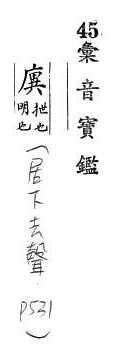 45彙音寶鑑
抴也
明也
(居下去聲. P531)